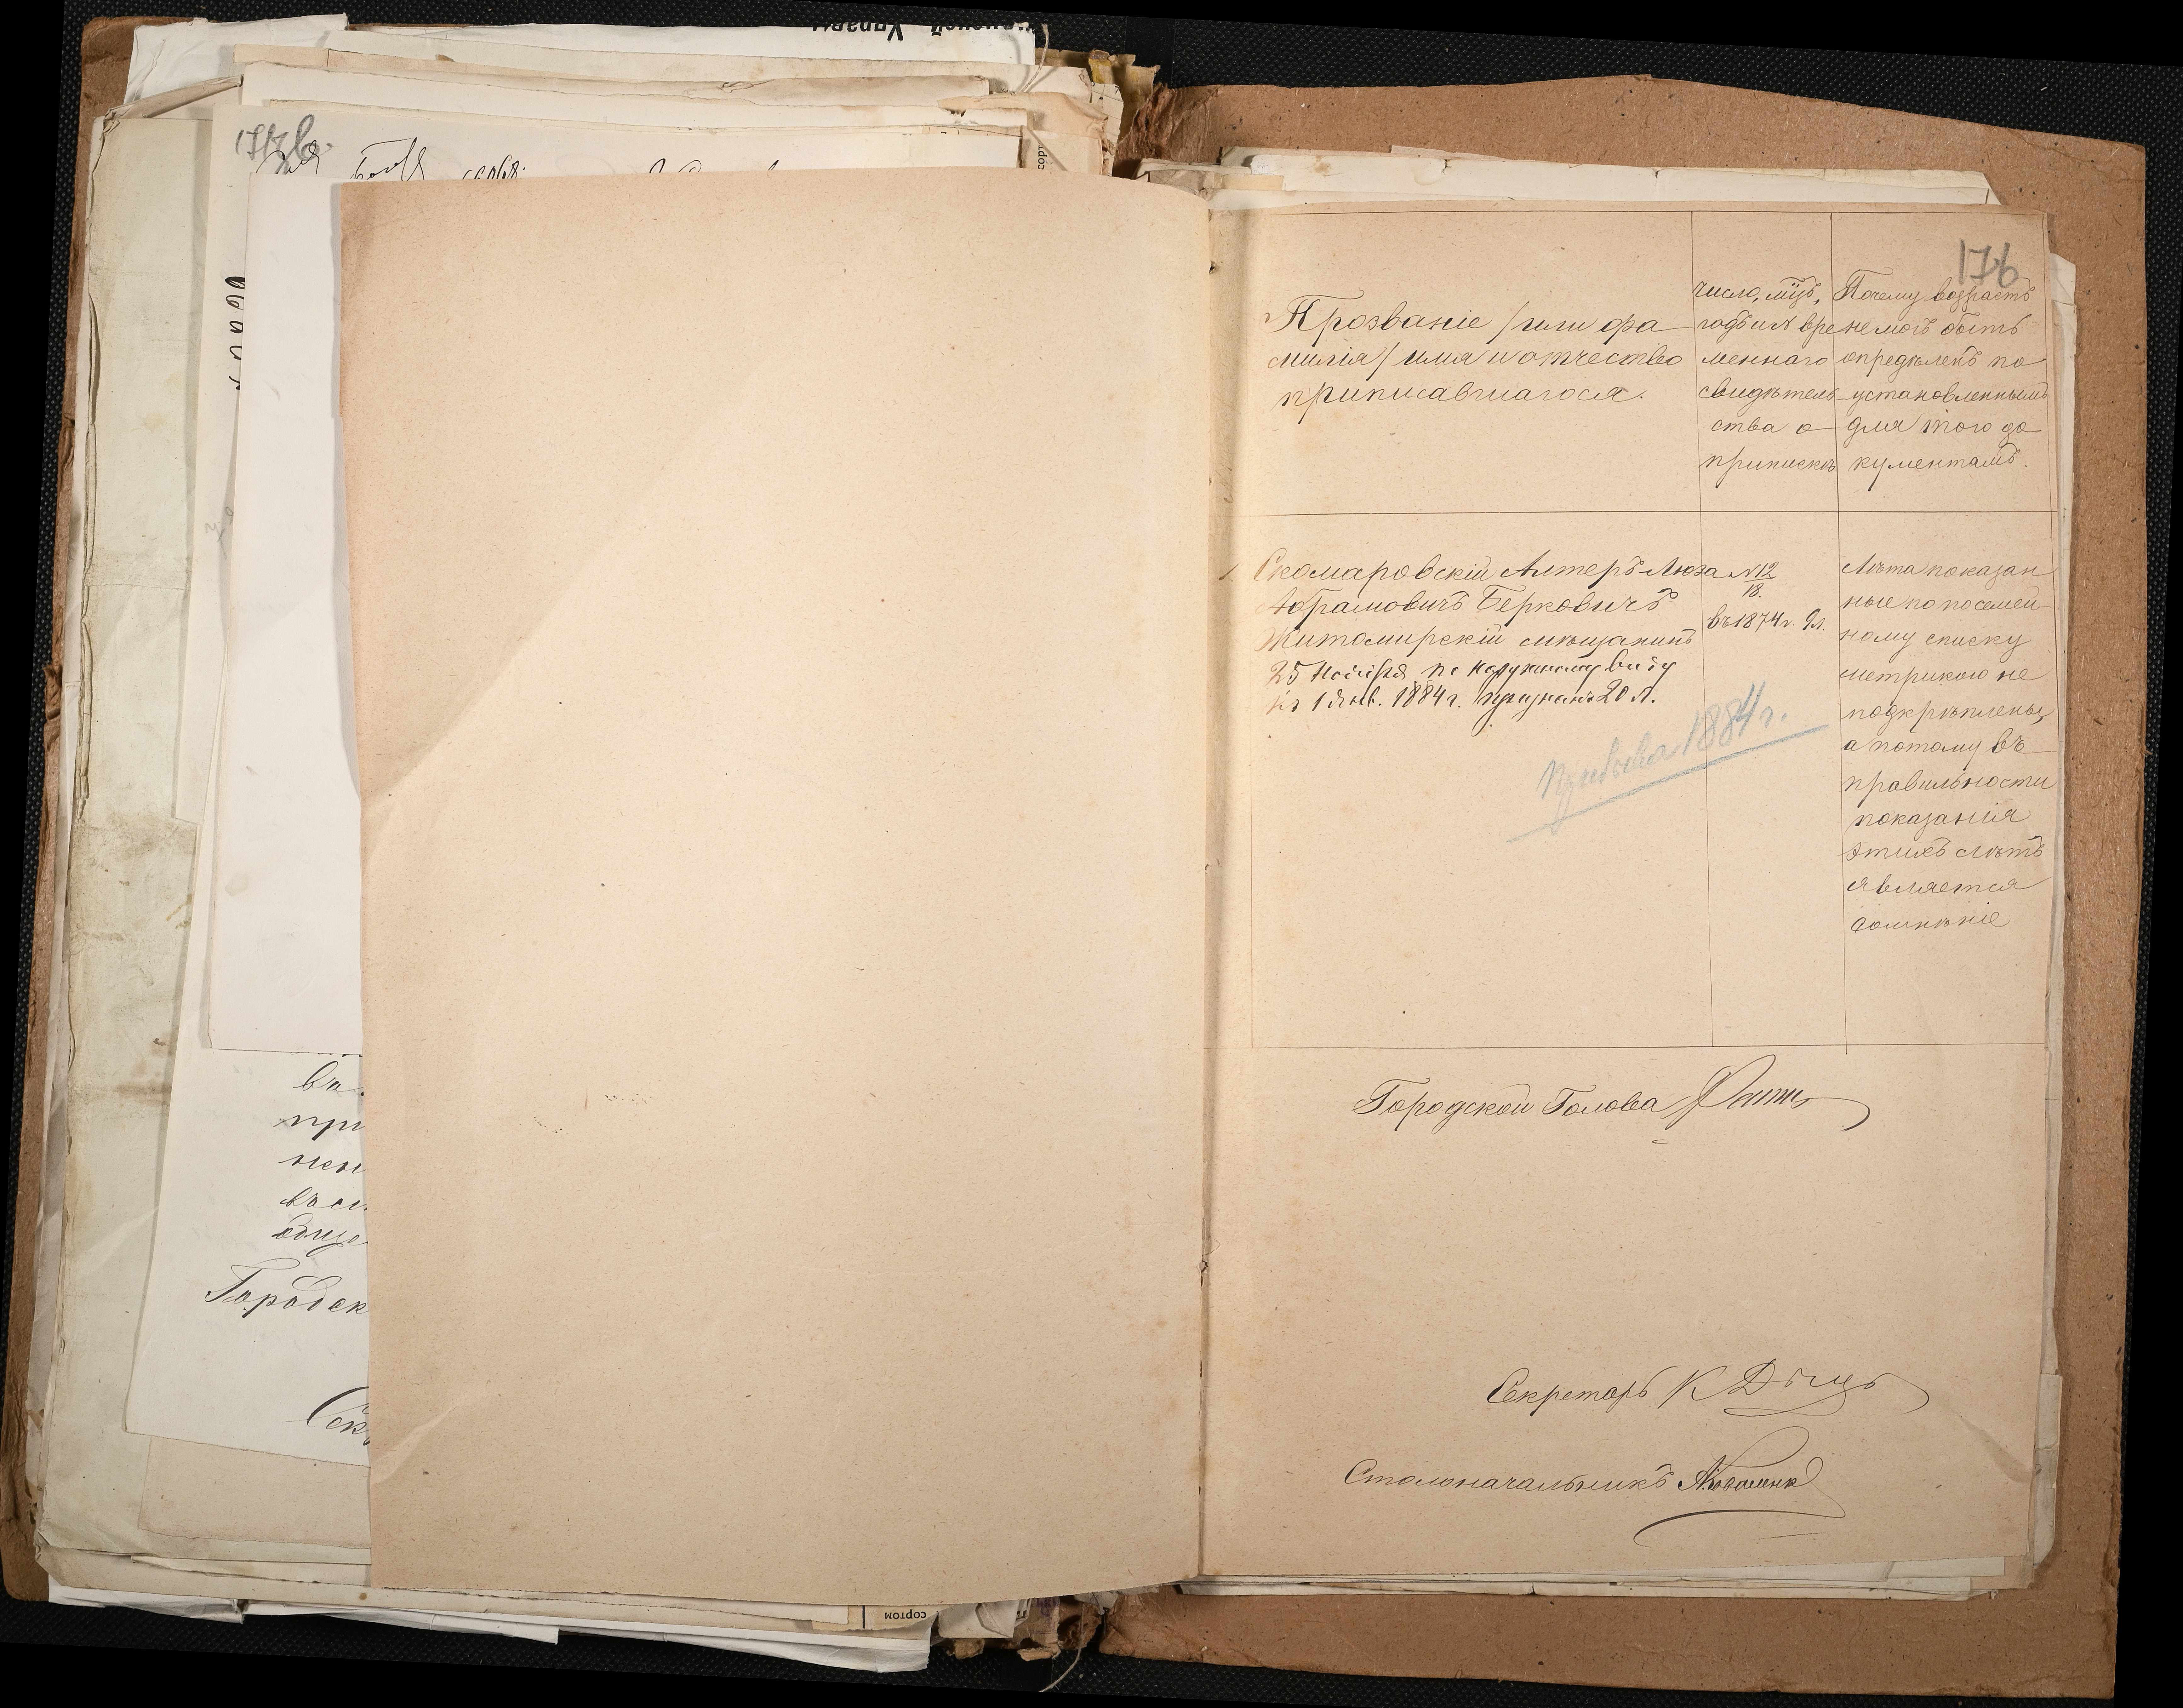 176
Прозваніе /или фа
милія/ имя и отчество
приписавшагося.
число, мцъ,
годъ и № вре
меннаго
свидѣтель
ства о
припискѣ
Почему возрастъ
не могъ быть
опредѣленъ по
установленнымъ
для того до
кументамъ.
Скомаровскій Алтеръ-Люза
Абрамовичъ Берковичъ
Житомирскій мѣщанинъ
25 Ноября по наружному виду
къ 1 Янв. 1884 г. признанъ 20 л.
№ 12
18.
въ 1874 г. 9 л.
Лѣта показан
ные по посемей
ному списку
метрикою не
подкрѣплены,
а потому въ
правильности
показанія
этихъ лѣтъ
является
сомнѣніе
призыва 1884 г.
Городской Голова
Секретарь К
Столоначальникъ
ва
при
мен
въ
обще
Городск
Сек
сортом
Управы